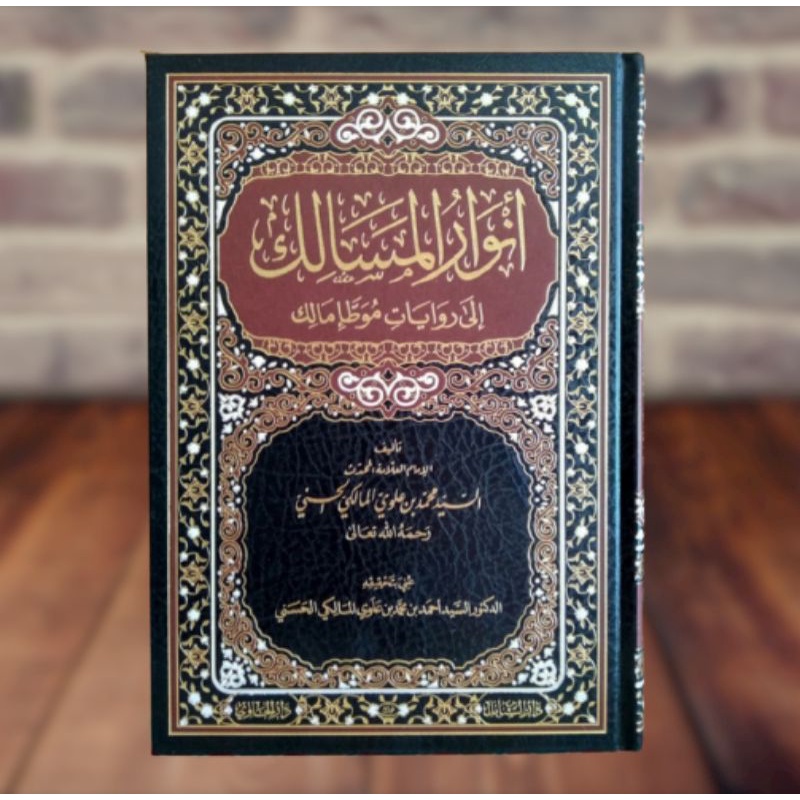 أنوار المسالك
إلى روايات موطإ مالك
تأليف
الإمام العلامة المحدث
السيد محمد بن علوي المالكي الحسني
رحمه الله تعالى
عني بتحقيقه
الدكتور السيد أحمد بن محمد بن علوي المالكي الحسني